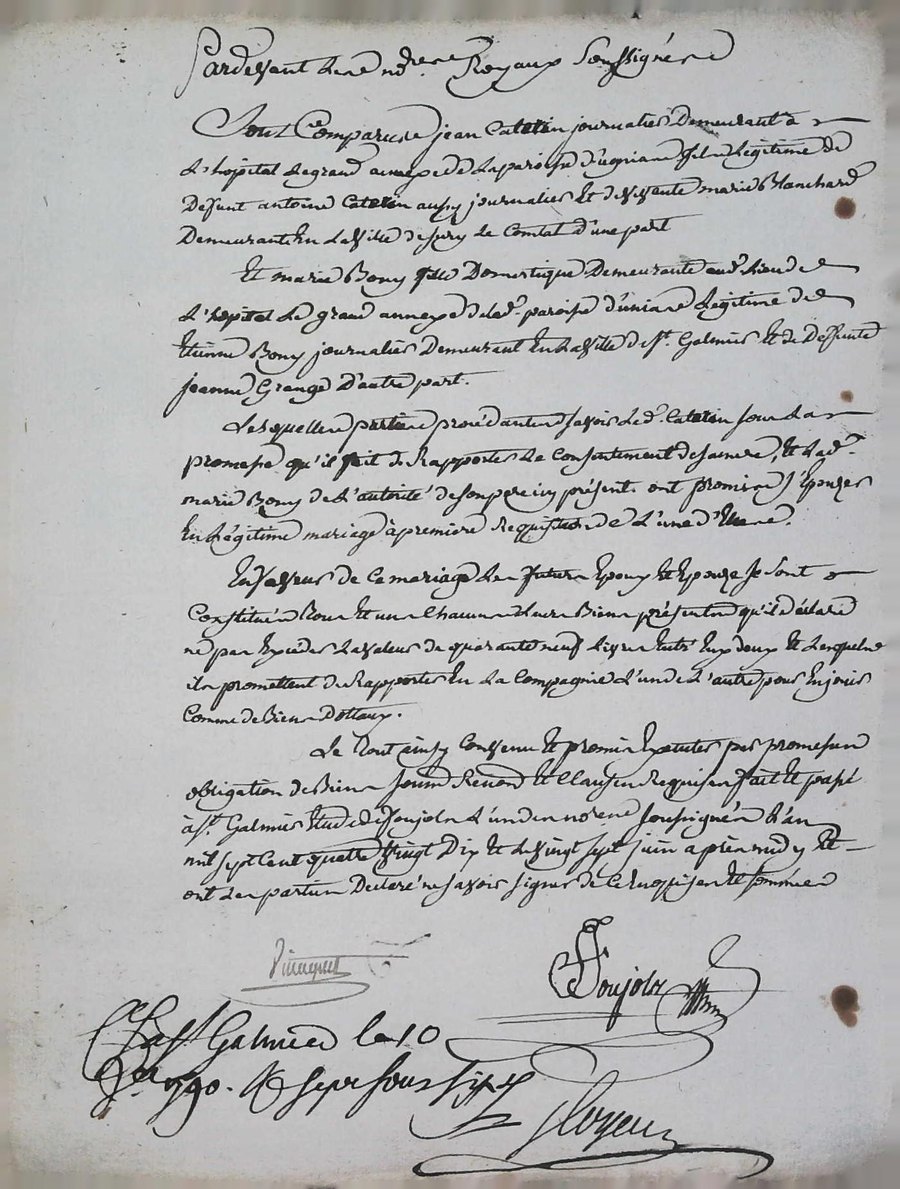 Pardevant les nres Royaux Soussignés
Sont Comparus jean Catetin journalier Demeurant à
L'hôpital Legrand annexe de La paroisse d'ugnias fils Légitime de
Defunt antoine Catetin aussy journalier Et de vivante marie Blanchard
Demeurants En La Ville de sury Le Comtal d'une part
Et marie Bony fille Domestique Demeurante aud. Lieu de
L'hôpital Le grand annexe de lad. paroisse d'unias Légitime de
Etienne Bony journalier Demeurant En La Ville de st. Galmier Et de Deffunte
jeanne Grange D'autre part.
Lesquelles parties procédantes sçavoir Led. Catetin sous La
promesse qu'il fait de Rapporter Le Consentement de sa mere, Et Lad.
marie Bony de L'autorité de son pere icy présent. ont promis s'Epouser
En Légitime mariage à premiere Requisition de L'une d'Elles.
En faveur de Ce mariage Les futurs Epoux Et Epouse se sont
Constitués Tous Et un Chacun Leurs Biens présents qu'ils déclare
ne pas Excéder La valeur de quarante neuf Livres Entr' Eux deux Et Lesquels
ils promettent de Rapporter En La Compagnie L'un de L'autre pour En jouir
Comme de Biens Dottaux.
Le Tout ainsy Convenu Et promis Executer par promesses
obligation de Biens soumis Renon Et Clauses Requises fait Et passé
à st. Galmier Etude de Soujols L'un des nores soussignés L'an
mil sept Cent quatre Vingt Dix Et Le Vingt sept juin après midy Et
ont Les parties Declaré ne sçavoir signer de Ce Enquises Et sommées
Soujols
à st Galmier le 10
1790. sept sous six d